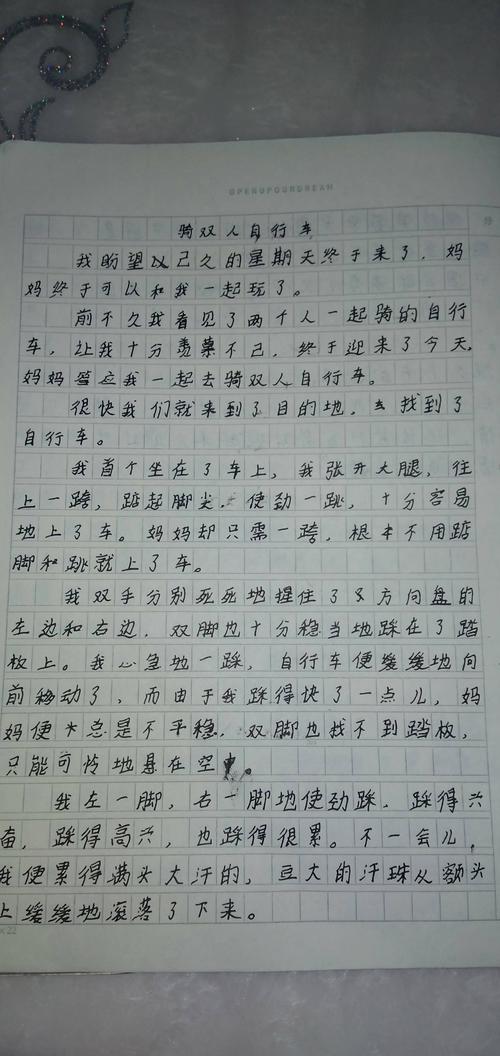 OPENUPOURDREAM
骑双人自行车
我盼望以己久的星期天终于来了，妈
妈终于可以和我一起玩了。
前不久我看见了两个人一起骑的自行
车，让我十分羡慕不己，终于迎来了今天，
妈妈答应我一起去骑双人自行车。
很快我们就来到了目的地，去找到了
自行车。
我首个坐在了车上，我张开大腿，往
上一跨，踮起脚尖，使劲一跳，十分容易
地上了车。妈妈却只需一跨，根本不用踮
脚和跳就上了车。
我双手分别死死地握住了方向盘的
左边和右边，双脚也十分稳当地踩在了踏
板上。我心急地一踩，自行车便缓缓地向
前移动了，而由于我踩得快了一点儿，妈
妈便总是不平稳，双脚也找不到踏板，
只能可怜地悬在空中。
我左一脚，右一脚地使劲踩，踩得兴
奋，踩得高兴，也踩得很累。不一会儿，
我便累得满头大汗的，豆大的汗珠从额头
上缓缓地滚落了下来。
×22